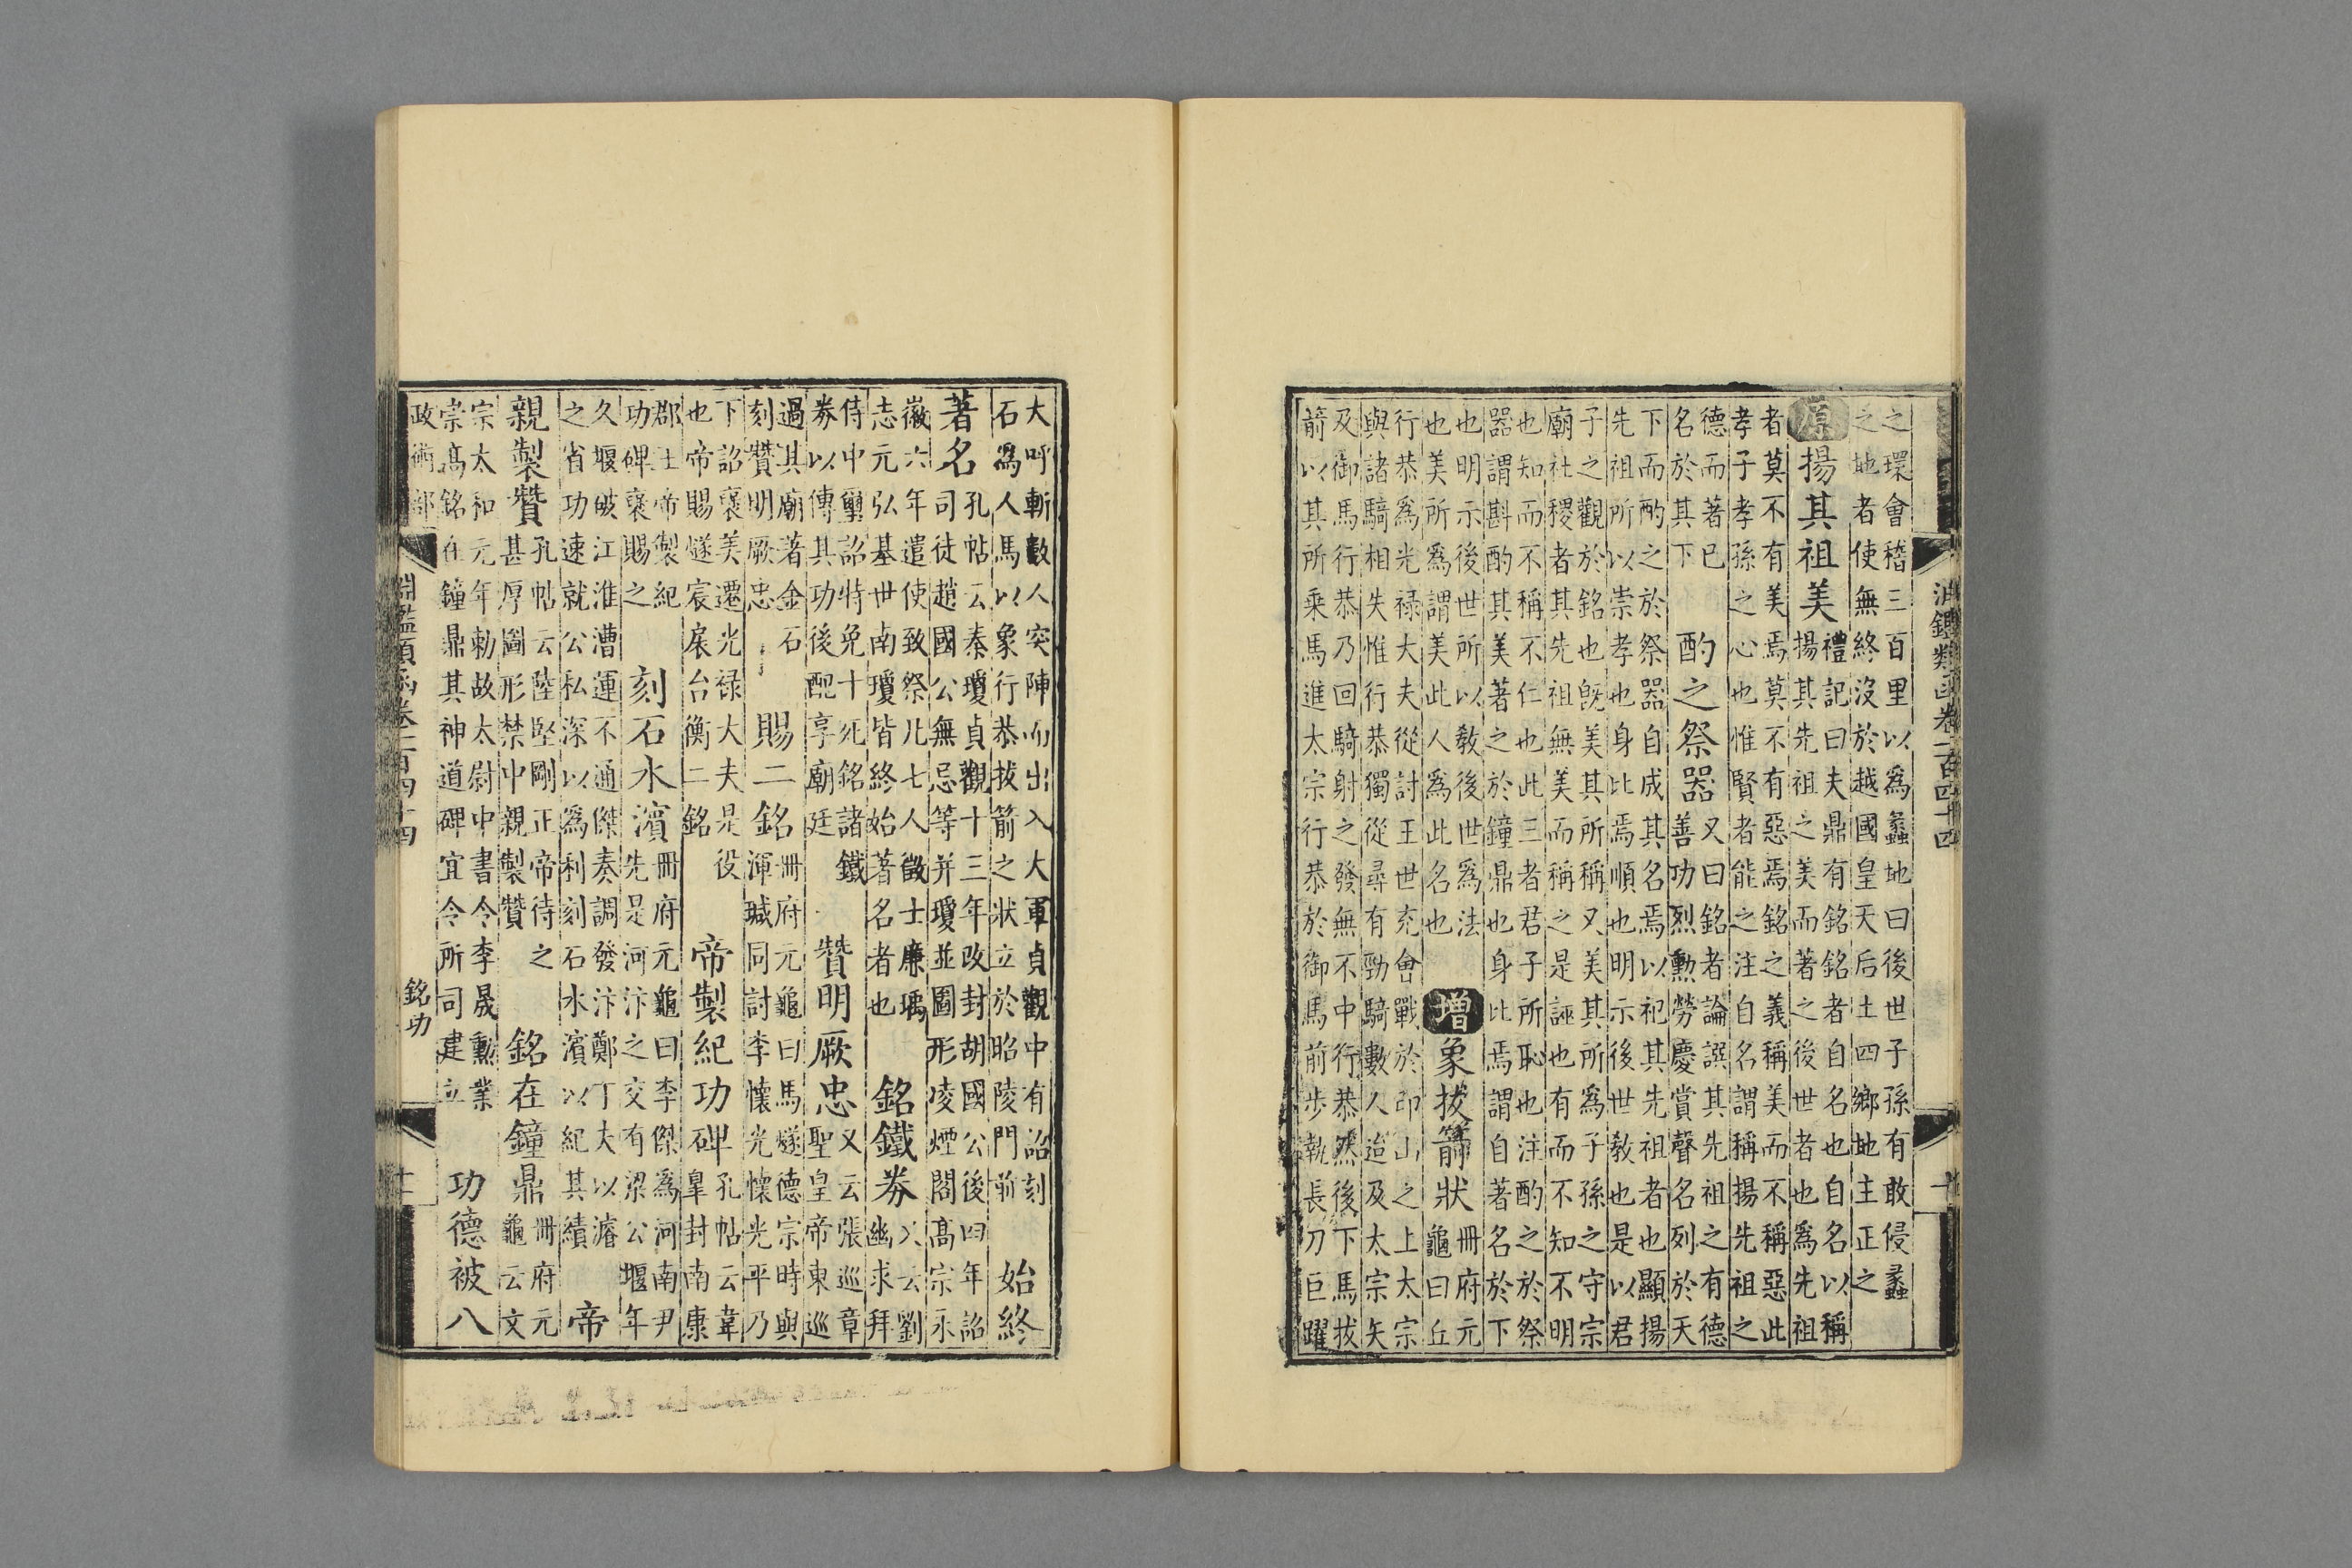 淵鑑類函卷二百四十四
之環會稽三百里以爲蠡地曰後世子孫有敢侵蠡
之地者使無終沒於越國皇天后土四鄉地主正之
原揚其祖美
禮記曰夫鼎有銘銘者自名也自名以稱
揚其先祖之美而著之後世者也爲先祖
者莫不有美焉莫不有惡焉銘之義稱美而不稱惡此
孝子孝孫之心也惟賢者能之注自名謂稱揚先祖之
德而著已
名於其下
酌之祭器
又曰銘者論譔其先祖之有德
善功烈勲勞慶賞聲名列於天
下而酌之於祭器自成其名焉以祀其先祖者也顯揚
先祖所以崇孝也身比焉順也明示後世教也是以君
子之觀於銘也旣美其所稱又美其所爲子孫之守宗
廟社稷者其先祖無美而稱之是誣也有而不知不明
也知而不稱不仁也此三者君子所恥也注酌之於祭
器謂斟酌其美著之於鐘鼎也身比焉謂自著名於下
也明示後世所以教後世爲法
也美所爲謂美此人爲此名也
增象拔箭狀
冊府元
龜曰丘
行恭爲光禄大夫從討王世充會戰於卭山之上太宗
與諸騎相失惟行恭獨從尋有勁騎數人追及太宗矢
及御馬行恭乃回騎射之發無不中行恭然後下馬拔
箭以其所乘馬進太宗行恭於御馬前步執長刀巨躍
大呼斬數人突陣而出入大軍貞觀中有詔刻
石爲人馬以象行恭拔箭之狀立於昭陵門前
始終
著名
孔帖云秦瓊貞觀十三年改封胡國公後四年詔
司徒趙國公無忌等并瓊並圖形凌煙閣高宗永
徽六年遣使致祭凡七人徵士廉瑀
志元弘基世南瓊皆終始著名者也
銘鐵劵
又云劉
幽求拜
侍中璽詔特免十死銘諸鐵
劵以傳其功後配享廟廷
贊明厥忠
又云張巡章
聖皇帝東巡
過其廟著金石
刻贊明厥忠
賜二銘
冊府元龜曰馬燧德宗時與
渾瑊同討李懷光懷光平乃
下詔褒美遷光禄大夫是役
也帝賜燧宸扆台衡二銘
帝製紀功碑
孔帖云韋
皐封南康
郡王帝製紀
功碑褒賜之
刻石水濱
冊府元龜曰李傑爲河南尹
先是河汴之交有梁公堰年
久堰破江淮漕運不通傑奏調發汴鄭丁夫以濬
之省功速就公私深以爲利刻石水濱以紀其績
帝
親製贊
孔帖云陸堅剛正帝待之
甚厚圖形禁中親製贊
銘在鐘鼎
冊府元
龜云文
宗太和元年勅故太尉中書令李晟勲業
崇高銘在鐘鼎其神道碑宜令所司建立
功德被八
政術部
淵鑑類函卷二百四十四
銘功